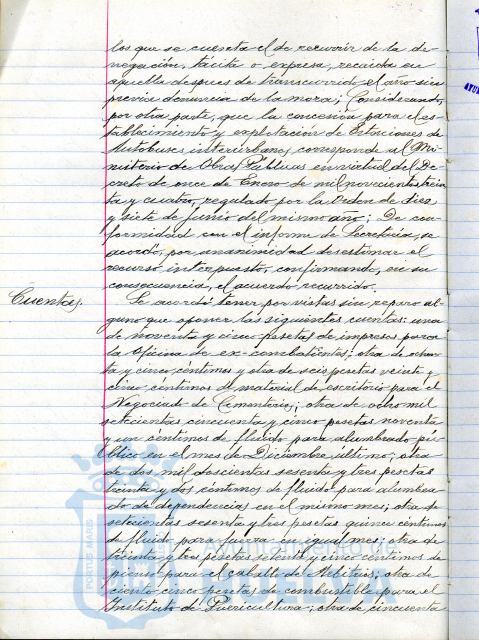 los que se cuenta el de recurrir de la de-
negación, tácita o expresa, recaida en
aquella despues de transcurrido el año sin
previa denuncia de la mora; Considerando,
por otra parte, que la concesión para el es-
tablecimiento y explotación de Estaciones de
Autobuses interurbanos corresponde al Mi-
nisterio de Obras Públicas en virtud del De-
creto de once de Enero de mil novecientos trein-
ta y cuatro, regulado por la Orden de diez
y siete de junio del mismo año; De con-
formidad con el informe de Secretaría, se
acordó, por unanimidad desestimar el
recurso interpuesto, confirmando, en su
consecuencia, el acuerdo recurrido.
Cuentas.
Se acordó tener por vistas sin reparo al-
guno que oponer las siguientes cuentas: una
de noventa y cinco pesetas de impresos para
la Oficina de ex-combatientes; otra de ochen-
ta y cinco céntimos y otra de seis pesetas veinte y
cinco céntimos de material de escritorio para el
Negociado de Cementerios; otra de ocho mil
setecientas cincuenta y cinco pesetas noventa
y un céntimos de fluido para alumbrado pú-
blico en el mes de Diciembre último; otra
de dos mil doscientas sesenta y tres pesetas
treinta y dos céntimos de fluido para alumbra-
do de dependencias en el mismo mes; otra de
setecientas sesenta y tres pesetas quince céntimos
de fluido para fuerza en igual mes; otra de
treinta y tres pesetas setenta y cinco céntimos de
pienso para el caballo de Arbitrios; otra de
ciento cinco pesetas de combustible para el
Instituto de Puericultura; otra de cincuenta
PORTUS MAGNUS